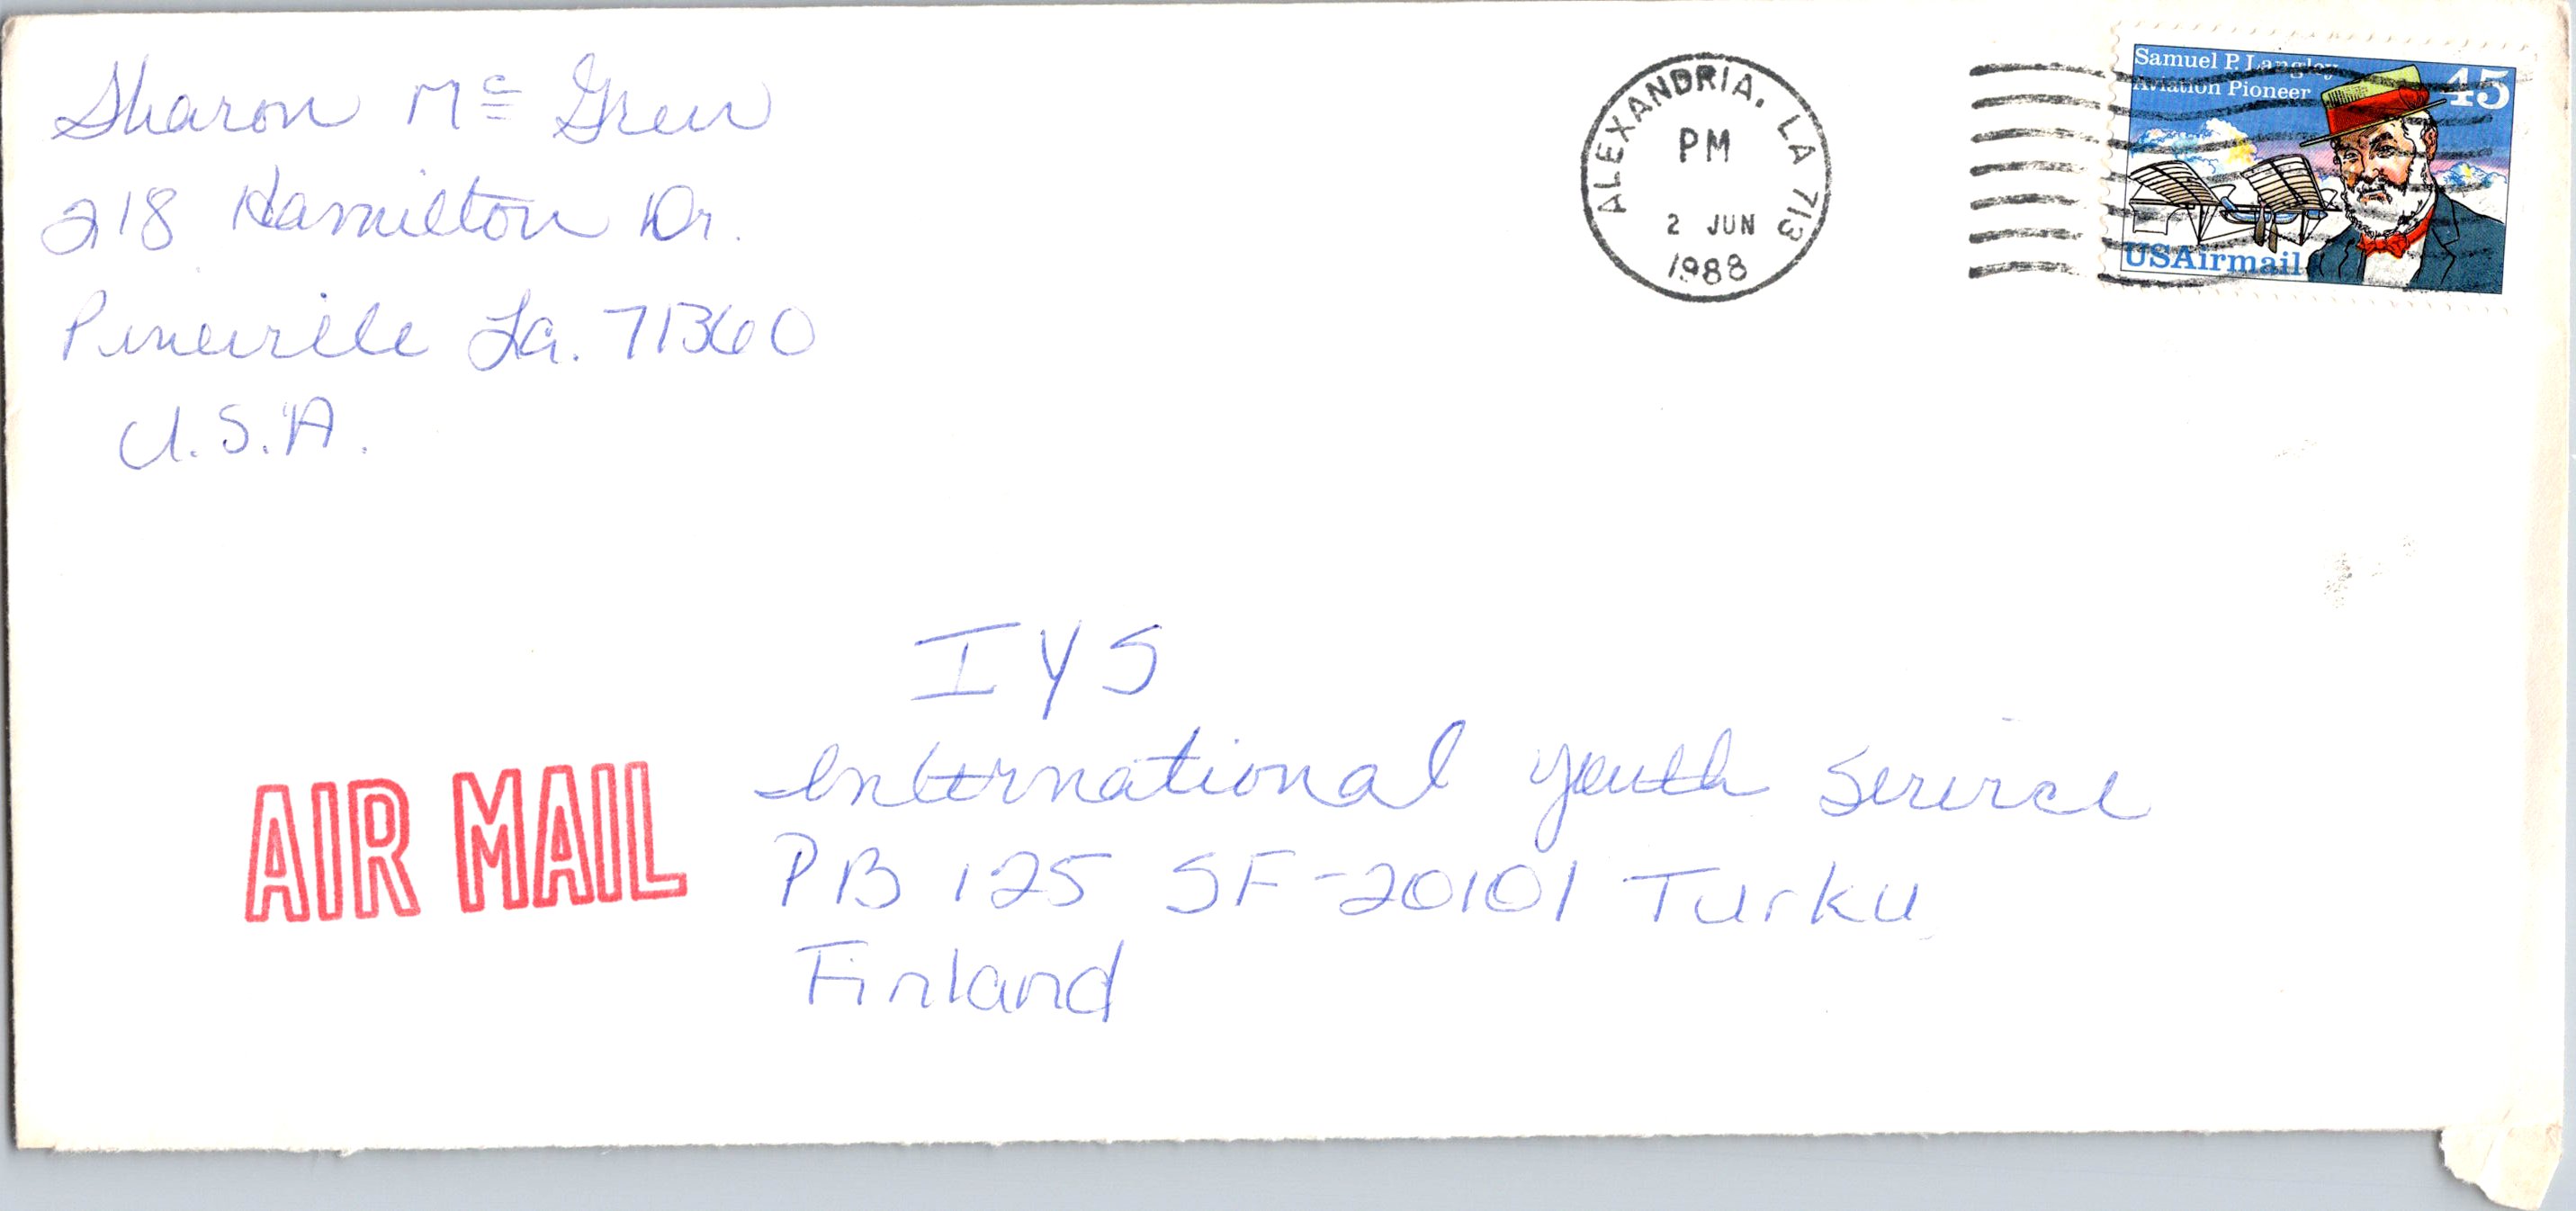 Sharon Mc Grew
218 Hamilton Dr.
Pineville La. 71360
U.S.A.
ALEXANDRIA, LA 713
PM
2 JUN
1988
Samuel P. Langley
Aviation Pioneer
45
USAirmail
IYS
International Youth Service
PB 125 SF-20101 Turku
Finland
AIR MAIL